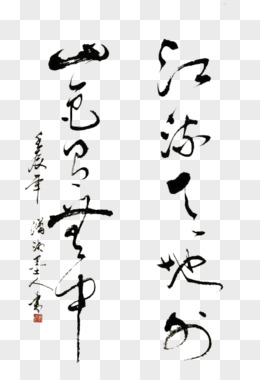 江流天地外
山色有無中
壬辰年